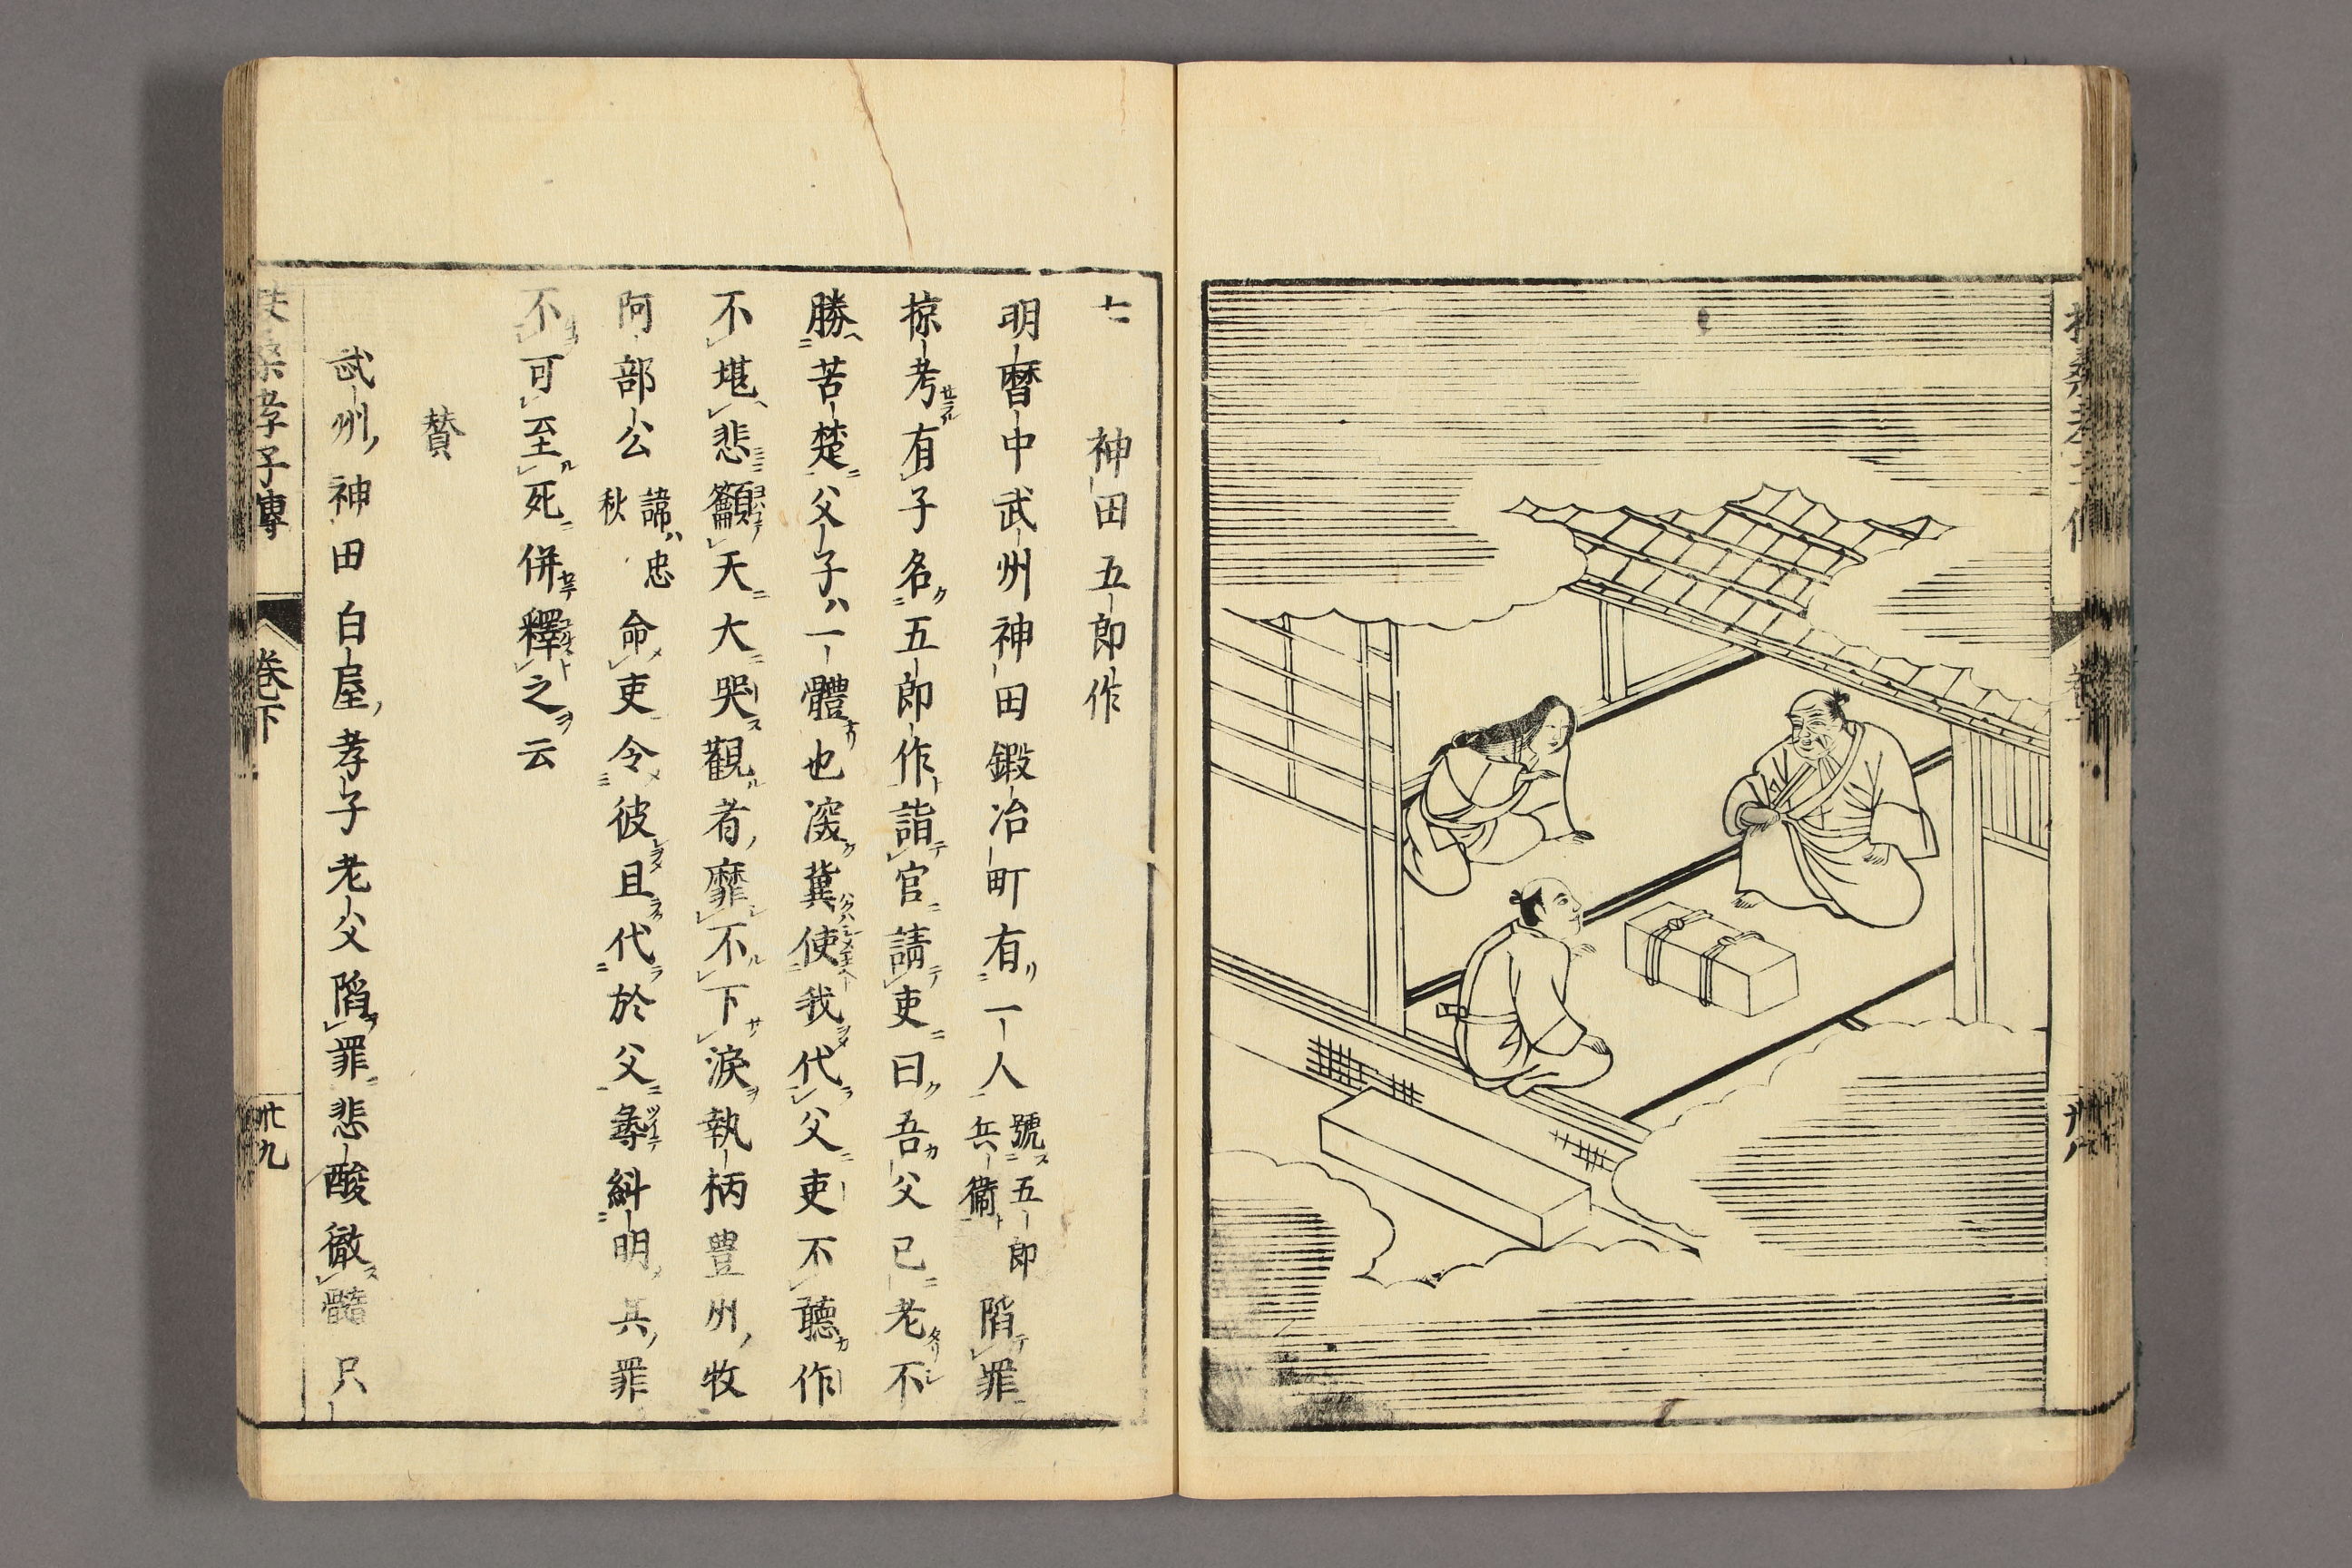 七　神田五郎作
明暦中武州神田鍛冶町有一人號五郎兵衞陷罪
掠考有子名五郎作詣官請吏曰吾父已老不
勝苦楚父子ハ一體也深冀使我代父吏不聽作
不堪悲籲天大哭觀者靡不下淚執柄豊州牧
阿部公諱ハ忠秋命吏令彼且代於父尋糾明兵罪
不可至死併釋之云
贊
武州神田白屋孝子老父陷罪悲酸徹髓只
扶桑孝子傳　卷下　卅九